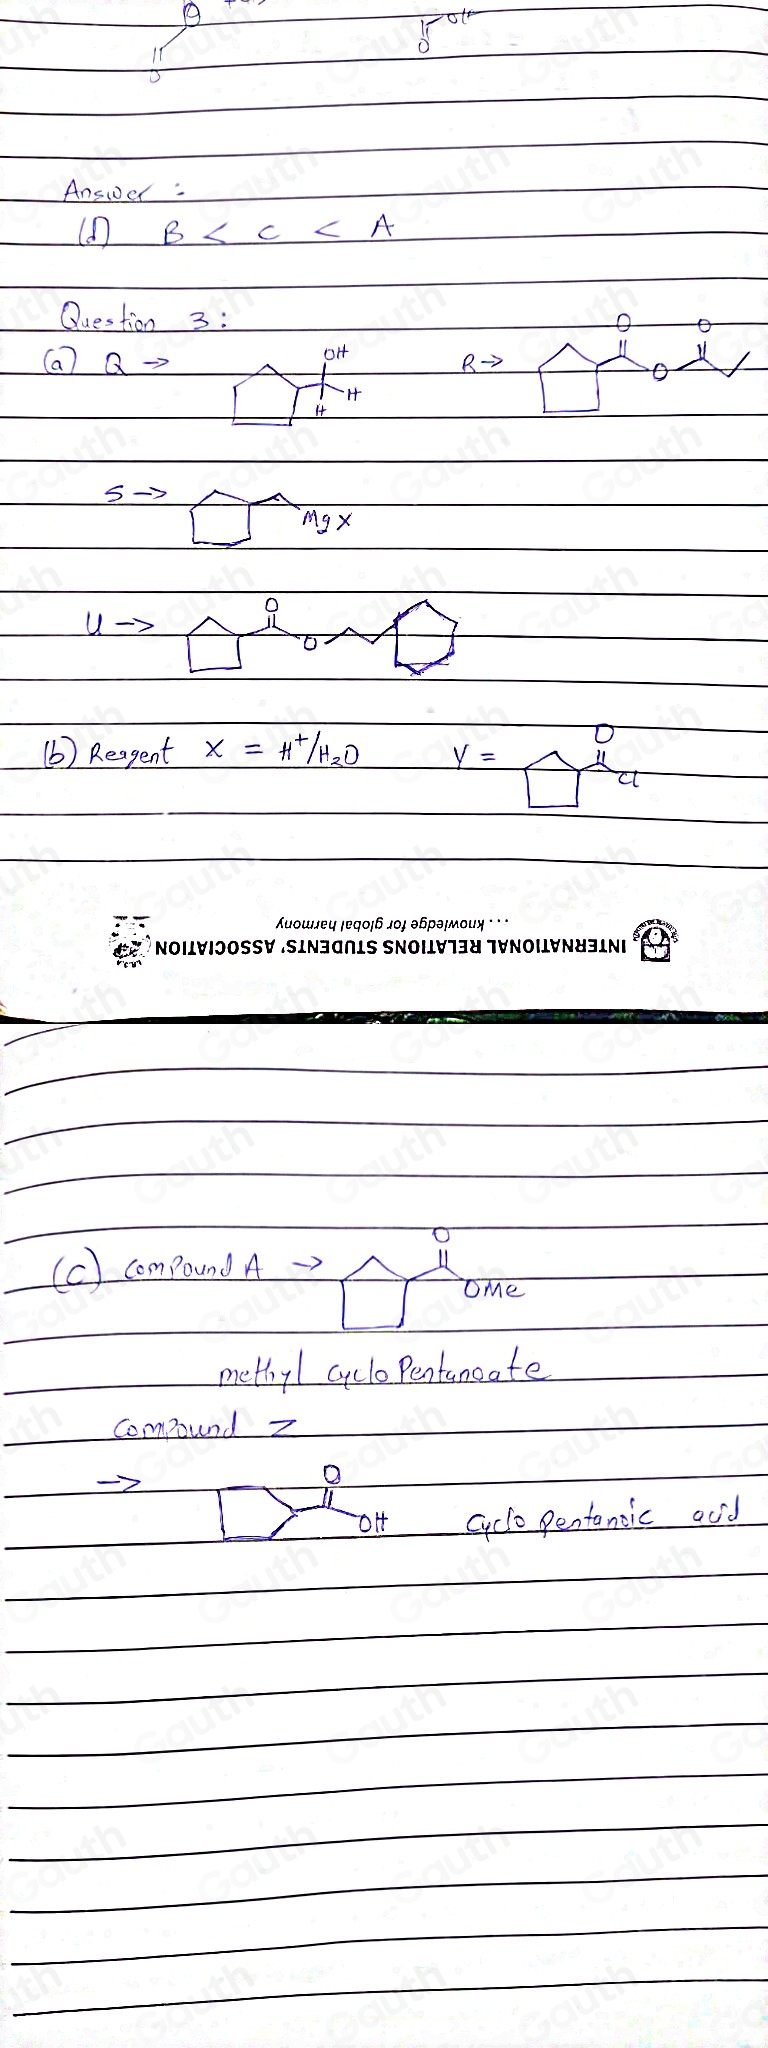 O
O
OH
O
Answer :
(d) B < C < A
Question 3:
(a) Q →
OH
H
H
R →
O
O
O
S →
Mg X
U →
O
O
(b) Reagent X = H+/H2O Y =
O
Cl
INTERNATIONAL RELATIONS STUDENTS' ASSOCIATION
... knowledge for global harmony
(C) Compound A →
O
OMe
methyl cyclo Pentanoate
Compound Z
→
O
OH
Cyclo Pentanoic acid